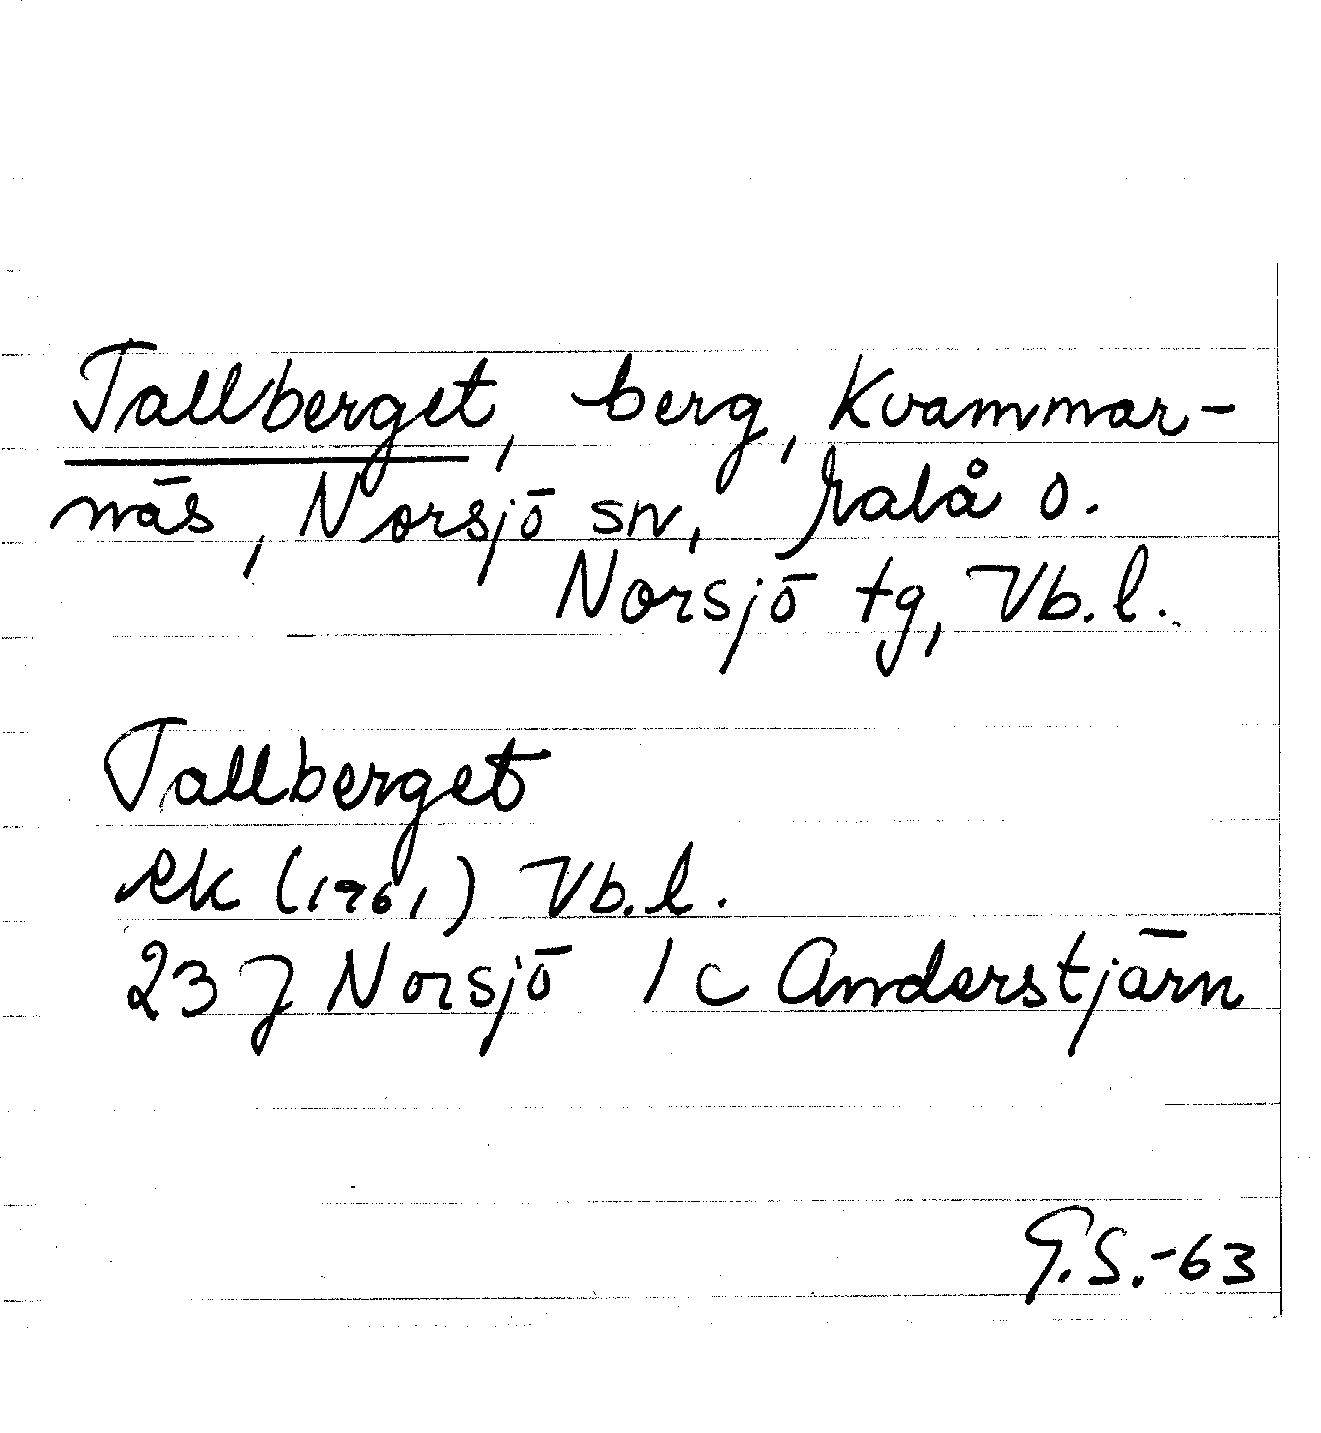 Tallberget, berg, Kvammar-
näs, Norsjö sn, Malå o.
Norsjö tg, Vb.l.
Tallberget
ek (1961) Vb.l.
23 J Norsjö 1 c Anderstjärn
G.S.-63